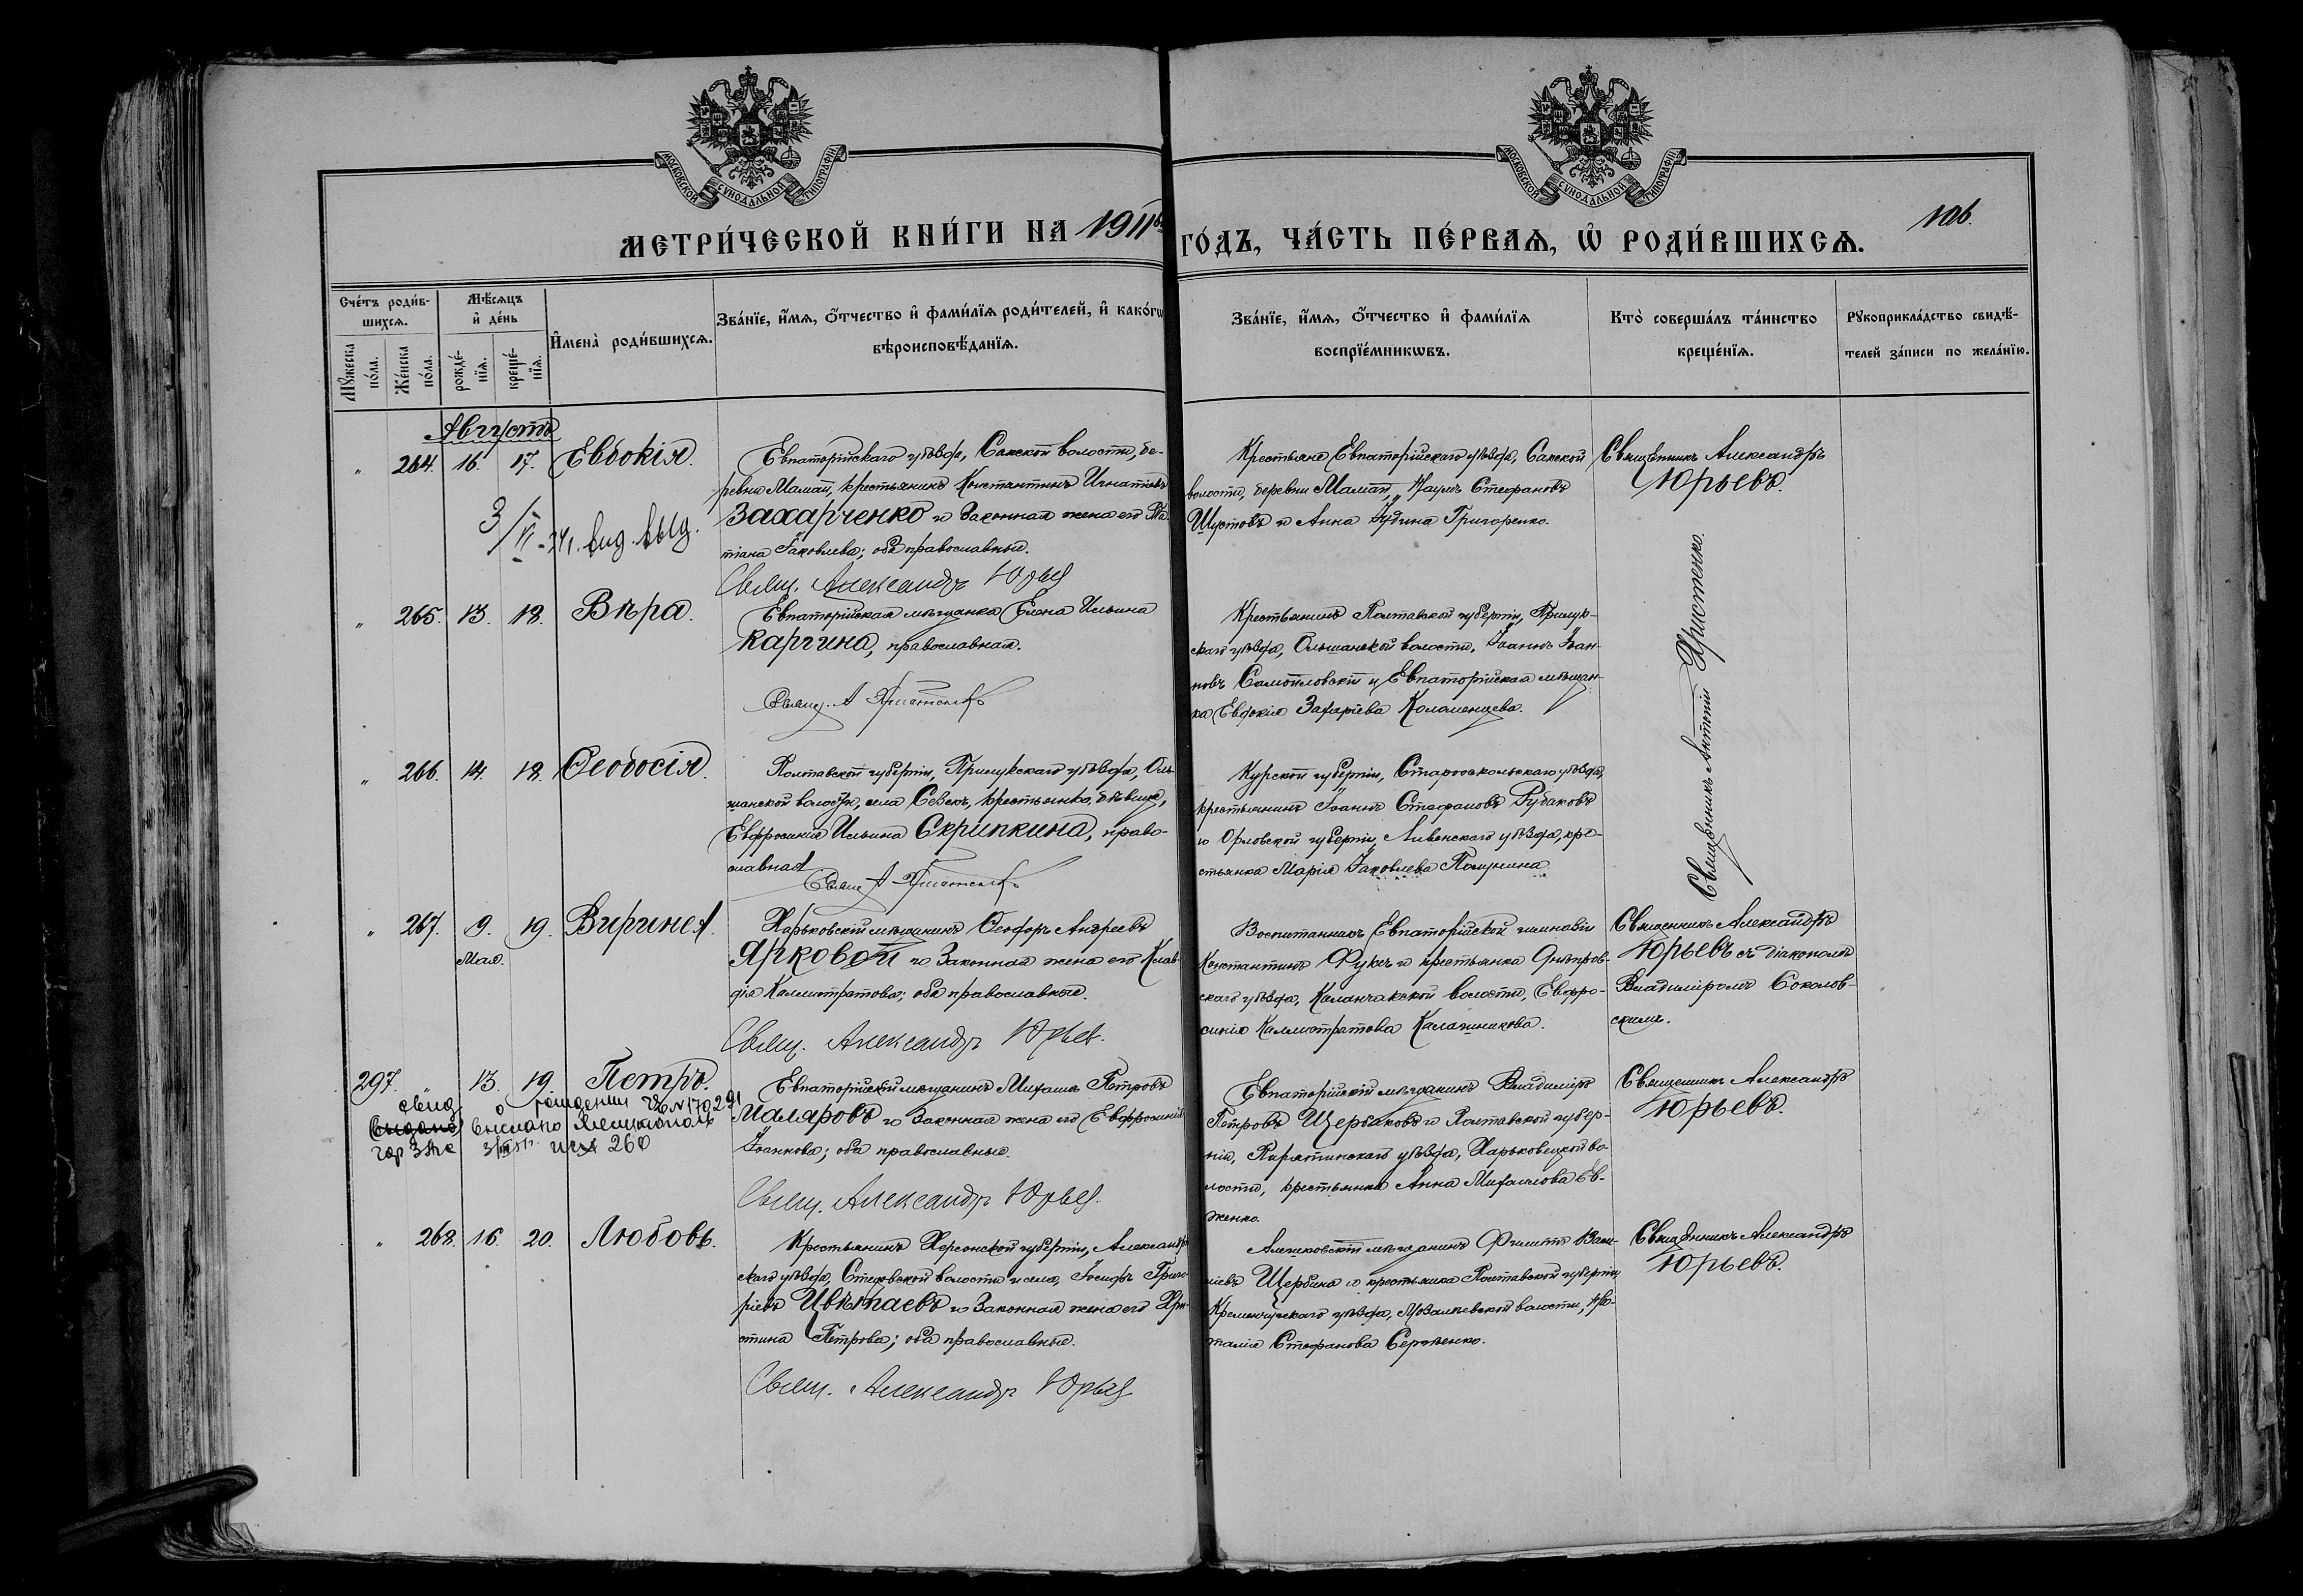 МОСКОВСКОЙ СѴНОДАЛЬНОЙ ТИПОГРАФІИ
МОСКОВСКОЙ СѴНОДАЛЬНОЙ ТИПОГРАФІИ
МЕТРИ́ЧЕСКОЙ КНИ́ГИ НА 1911й
ГО́ДЪ, ЧА́СТЬ ПЕ́РВАѦ, Ѡ҆ РОДИ́ВШИХСѦ.
106.
Сче́тъ роди́в-
шихсѧ.
Мѣ́сѧцъ
и҆ де́нь
Мꙋ́жеска
по́ла.
Же́нска
по́ла.
рожде́-
нїѧ.
креще́-
нїѧ.
И҆мена̀ роди́вшихсѧ.
Зва́нїе, и҆́мѧ, ѻ҆́тчество и҆ фами́лїѧ роди́телей, и҆ како́гѡ
вѣроисповѣ́данїѧ.
Зва́нїе, и҆́мѧ, ѻ҆́тчество и҆ фами́лїѧ
воспрїе́мникѡвъ.
Кто̀ соверша́лъ та́инство
креще́нїѧ.
Рꙋкоприкла́дство свидѣ́-
телей за́писи по жела́нїю.
Августъ
" 264. 16. 17. Евдокія.
Евпаторійскаго уѣзда, Сакской волости, де-
ревни Мамай, крестьянинъ Константинъ Игнатіевъ
Захарченко и законная жена его Та-
тіана Іаковлева; оба православные.
Свящ. Александръ Юрьев
Крестьяне Евпаторійскаго уѣзда, Сакской
волости, деревни Мамай, Наумъ Стефановъ
Шустовъ и Анна Іудина Григоренко.
Священникъ Александръ
Юрьевъ.
выд.
" 265. 13. 18. Вѣра.
Евпаторійская мѣщанка Елена Ильина
Каргина, православная.
Свящ. А Христенко
Крестьянинъ Полтавской губерніи, Прилук-
скаго уѣзда, Ольшанской волости, Іоаннъ Іоан-
новъ Самойловскій и Евпаторійская мѣщан-
ка Евдокія Захаріева Коломенцева.
Священникъ Антоній Христенко.
" 266. 14. 18. Ѳеодосія.
Полтавской губерніи, Прилукскаго уѣзда, Оль-
шанской волости, села Севскъ, крестьянка, дѣвица,
Евфросинія Ильина Скрипкина, право-
славная
Свящ А Христенко
Курской губерніи, Старооскольскаго уѣзда,
крестьянинъ Іоаннъ Стефановъ Рудаковъ
и Орловской губерніи, Ливенскаго уѣзда, кре-
стьянка Марія Іаковлева Полунина
" 267. 9. 19. Виринея.
Мая.
Харьковскій мѣщанинъ Ѳеодоръ Андреевъ
Ярковой и законная жена его Клав-
дія Каллистратова; оба православные.
Свящ. Александръ Юрьев.
Воспитанникъ Евпаторійской гимназіи
Константинъ Фуки и крестьянка Днѣпров-
скаго уѣзда, Каланчакской волости, Евфро-
синія Каллистратова Калашникова.
Священникъ Александръ
Юрьевъ съ діакономъ
Владиміромъ Соколов-
скимъ.
297. " 13. 19. Петръ.
свид о рождении
выслано
260
Евпаторійскій мѣщанинъ Михаилъ Петровъ
Маляровъ и законная жена его Евфросинія
Іоаннова; оба православные.
Свящ. Александръ Юрьев.
Евпаторійскій мѣщанинъ Владиміръ
Петровъ Щербаковъ и Полтавской губер-
ніи, Пирятинскаго уѣзда, Харьковецкой во-
лости, крестьянка Анна Михаилова Ев-
женко.
Священникъ Александръ
Юрьевъ.
" 268. 16. 20. Любовь.
Крестьянинъ Херсонской губерніи, Александрій-
скаго уѣзда, Стецовской волости и села, Іосифъ Григо-
ріевъ Цвѣтаевъ и законная жена его Хри-
стина Петрова; оба православные.
Свящ. Александръ Юрьев
Алешковскій мѣщанинъ Филиппъ Васи-
ліевъ Щербина и крестьянка Полтавской губерніи,
Кременчугскаго уѣзда, волости, На-
талія Стефанова Сероженко.
Священникъ Александръ
Юрьевъ.